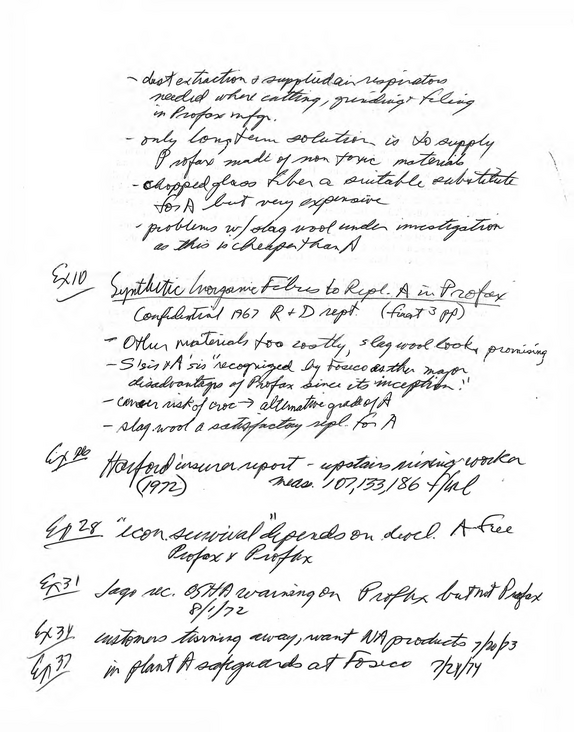 - dust extraction & supplied air respirators
needed where cutting, grinding & filing
in Profax mfgr.
- only long term solution is to supply
Profax made of non toxic materials
- chopped glass fiber a suitable substitute
for A but very expensive
- problems w/ slag wool under investigation
as this is cheaper than A
Ex 10 Synthetic Inorganic Fibres to Repl. A in Profax
Confidential 1967 R + D rept. (first 3 pp)
- Other materials too costly, slag wool looks promising
- S'sis & A'sis "recognized by Foseco as the major
disadvantage of Profax since its inception."
- cancer risk of croc → alternative grade of A
- slag wool a satisfactory repl. for A
Ex 26 Hartford insurer report - upstairs mixing worker
(1972) meas. 107, 133, 186 f/ml
Ex 28 "econ survival" depends on devel. A-Free
Profax & Proflux
Ex 31 Jago rec. OSHA warning on Proflux but not Profax
8/1/72
Ex 34 customers turning away, want NA products 7/20/73
Ex 37 in plant A safeguards at Foseco 7/24/74